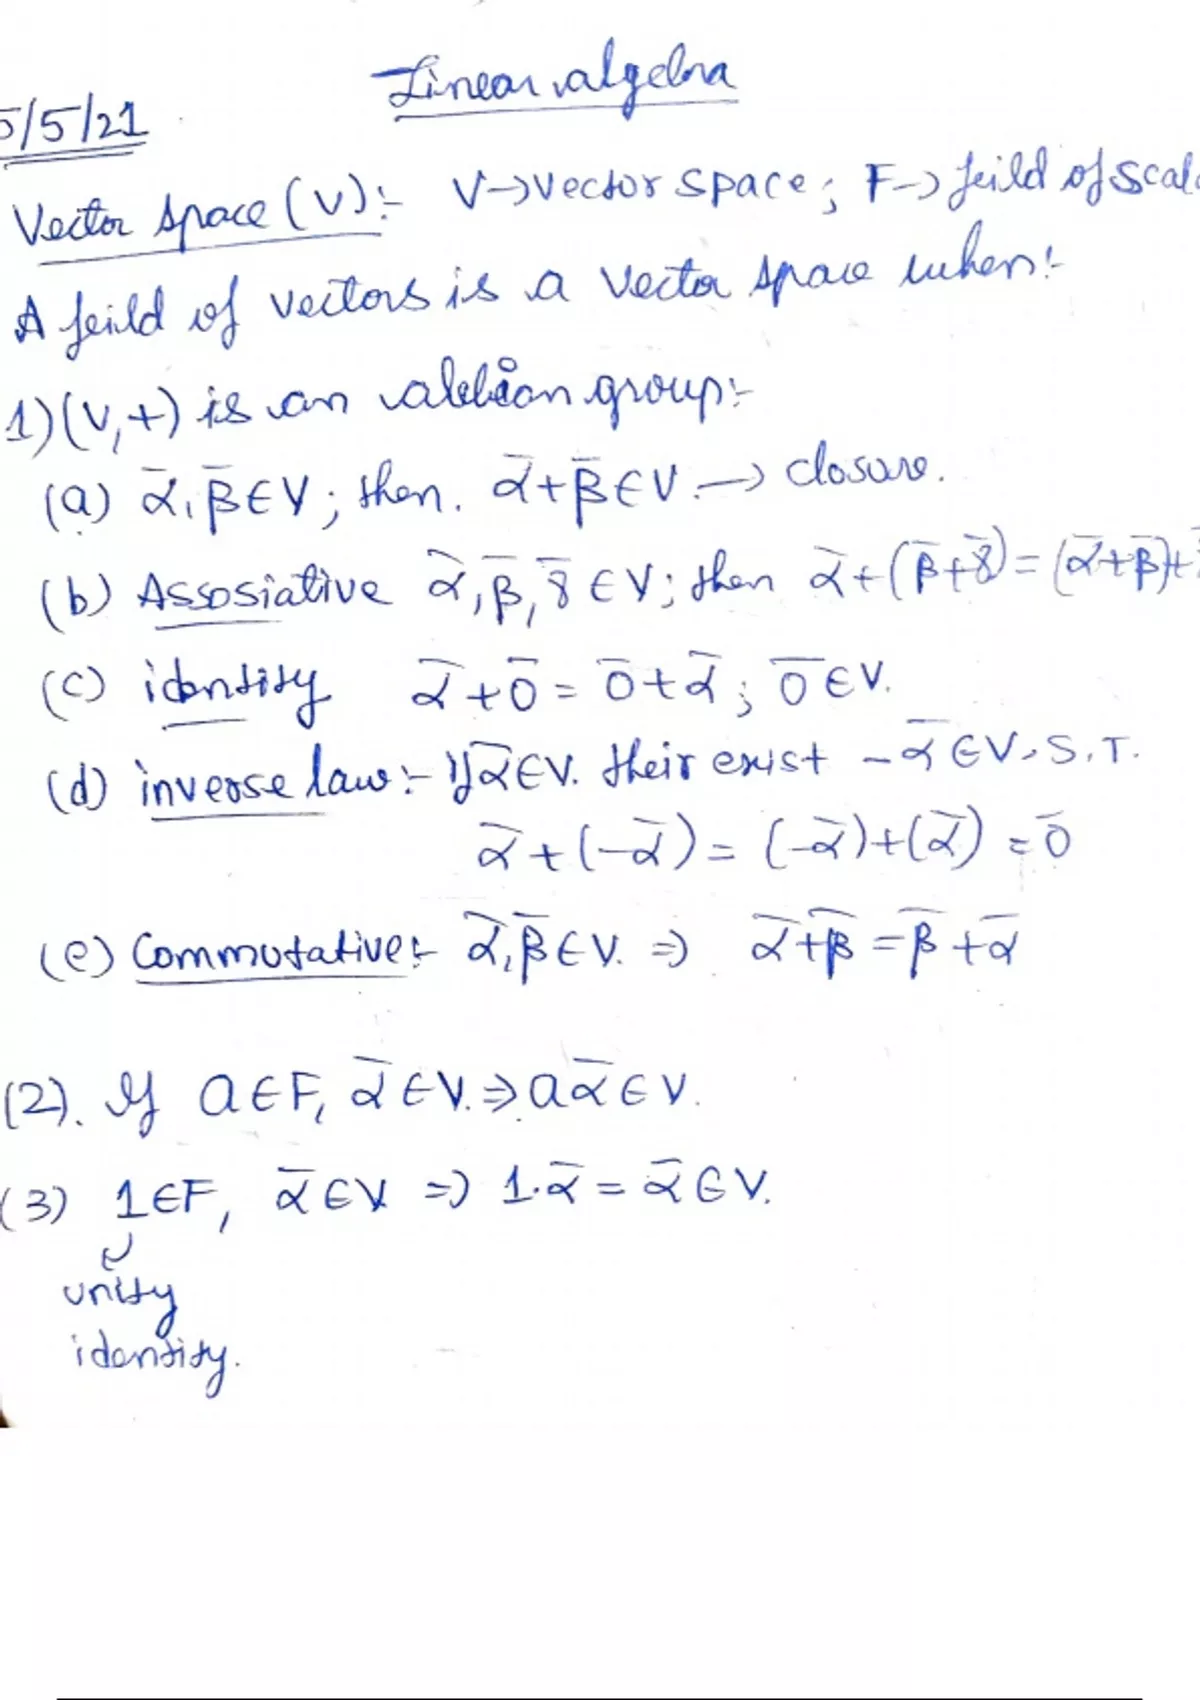 Linear algebra
5/5/21
Vector Space (V):- V→vector space; F→ feild of scal
A feild of vectors is a vector space when:-
1) (V,+) is an abelian group:-
(a) ᾱ, β̄ ∈ V; then. ᾱ+β̄ ∈ V. → closure.
(b) Assosiative ᾱ, β̄, γ̄ ∈ V; then ᾱ+(β̄+γ̄) = (ᾱ+β̄)+
(c) identity ᾱ+0̄ = 0̄+ᾱ; 0̄ ∈ V.
(d) inverse law:- If ᾱ∈V. their exist -ᾱ ∈ V, S.T.
ᾱ+(-ᾱ) = (-ᾱ)+(ᾱ) = 0̄
(e) Commutative:- ᾱ, β̄ ∈ V. ⇒ ᾱ+β̄ = β̄+ᾱ
(2). If a∈F, ᾱ ∈ V. ⇒ aᾱ ∈ V.
(3) 1∈F, ᾱ ∈ V ⇒ 1.ᾱ = ᾱ ∈ V.
unity
identity.